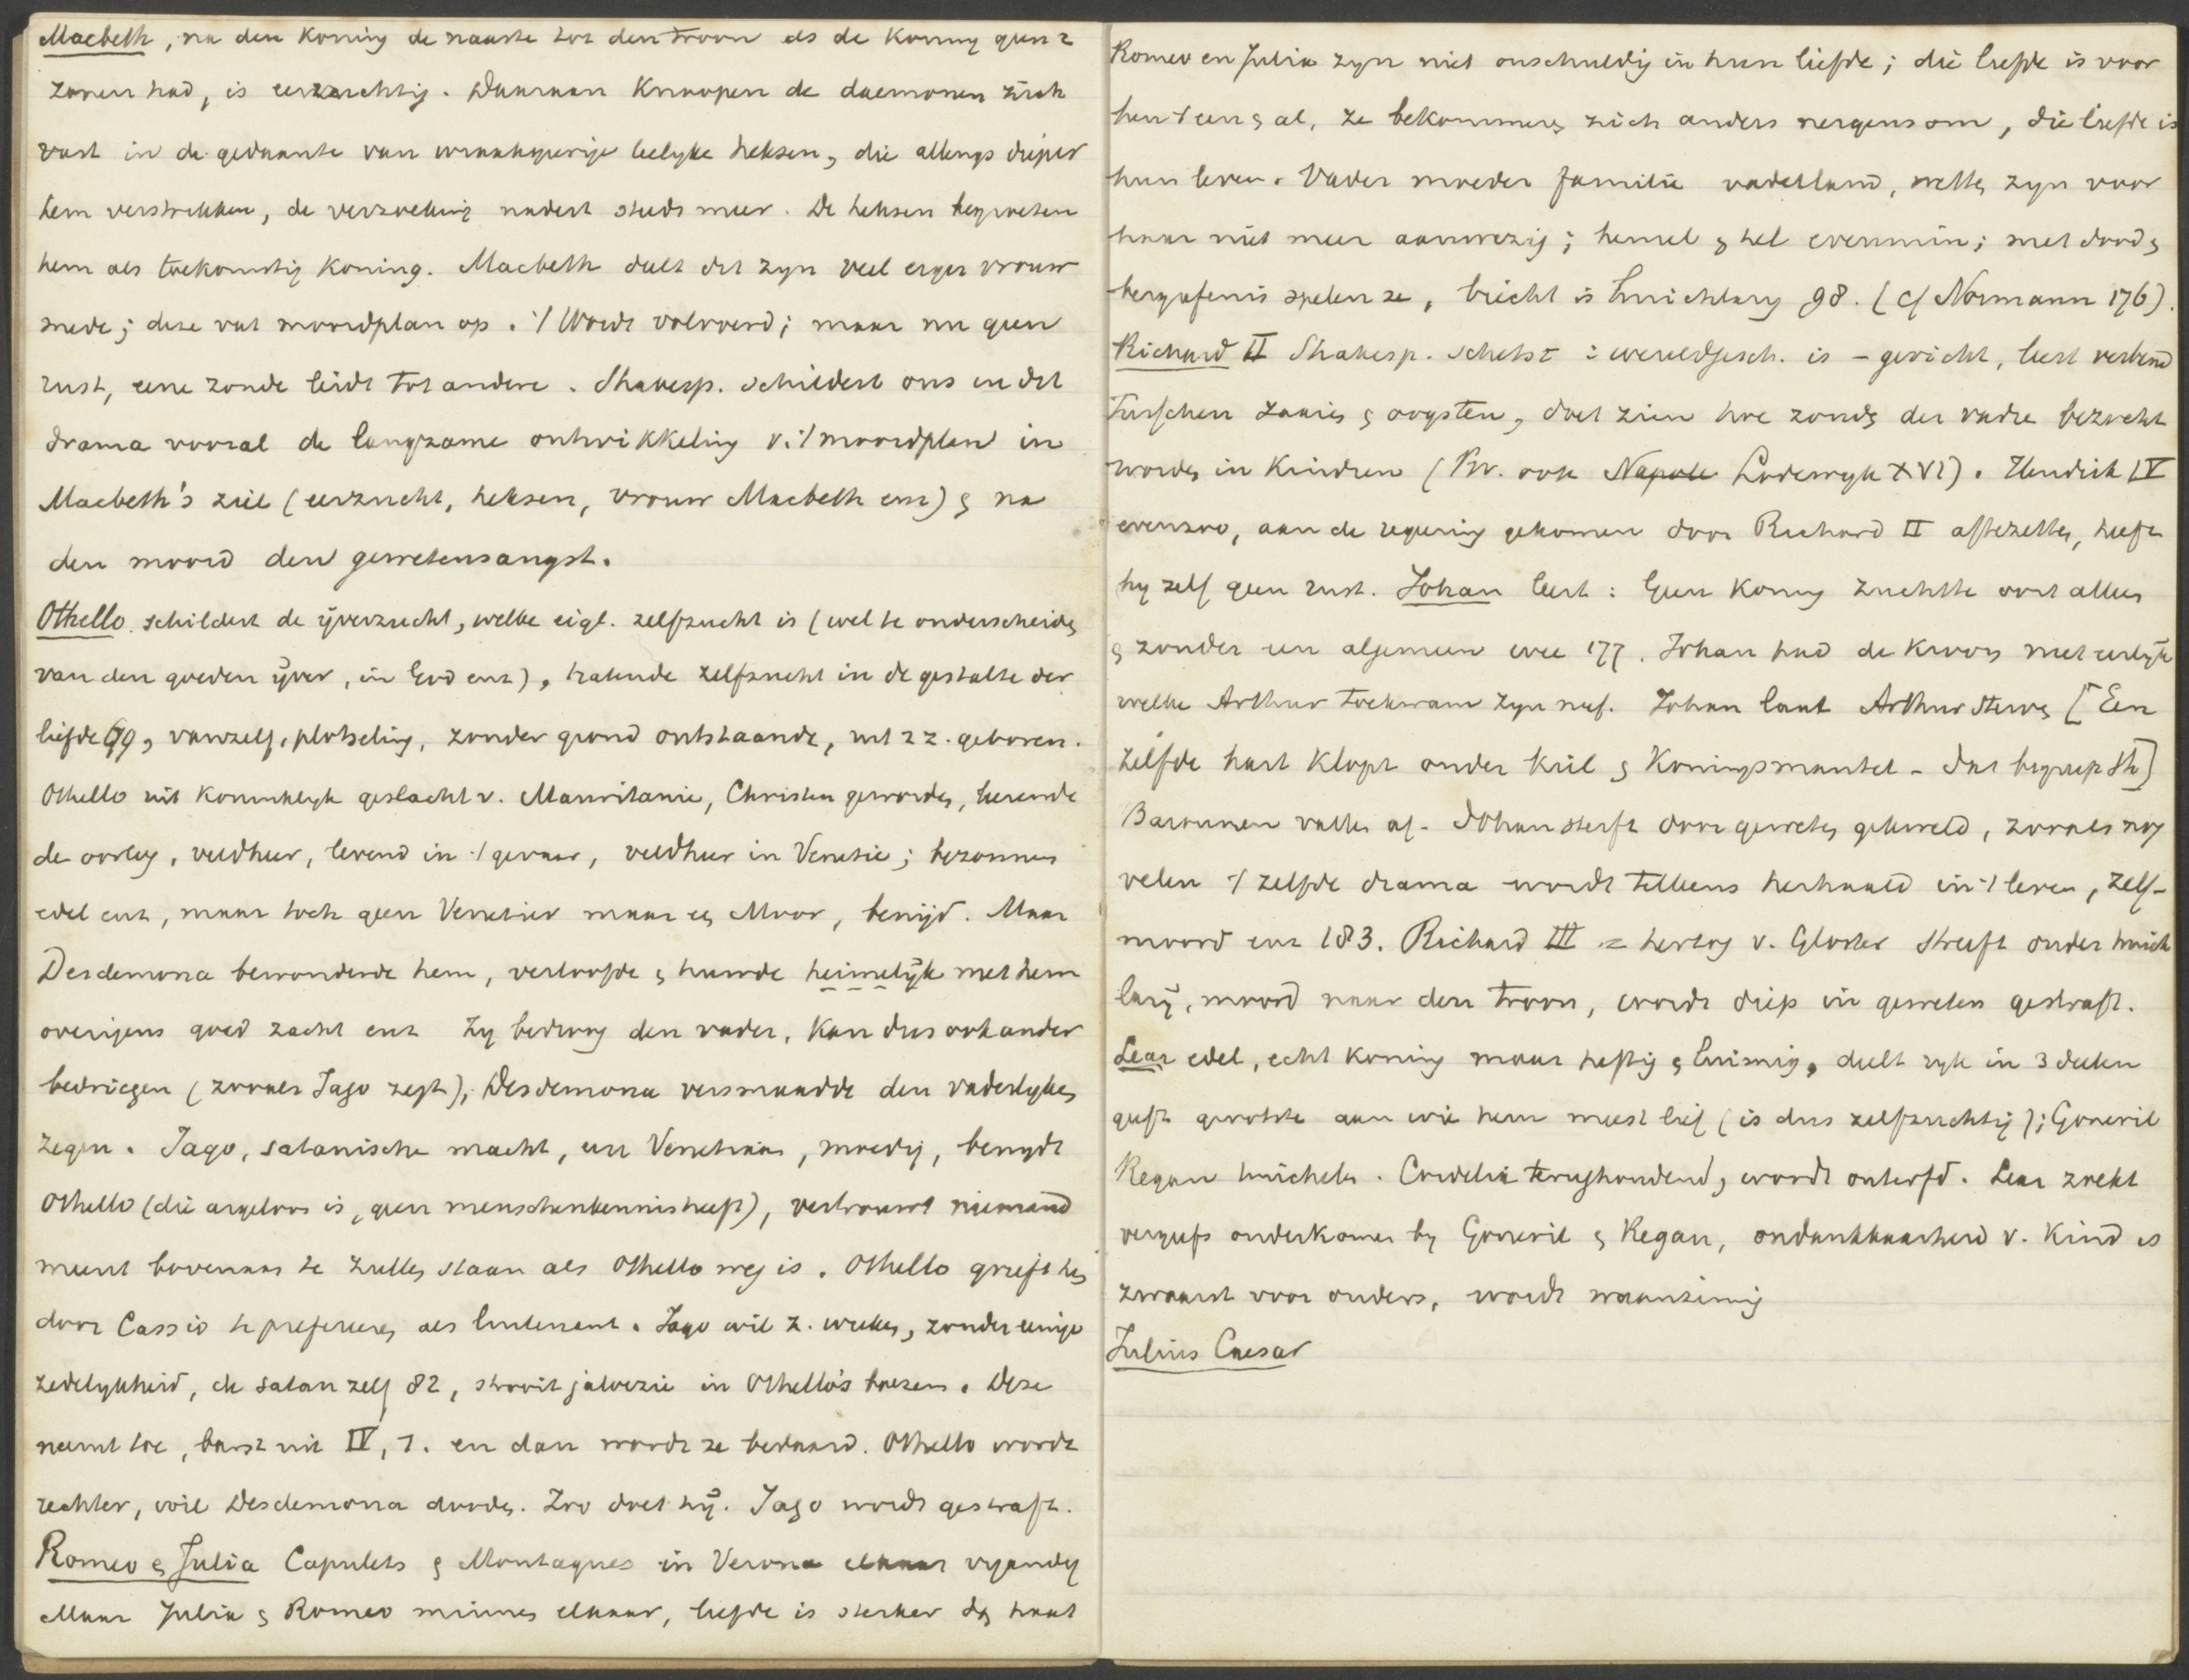 Macbeth, na den Koning de naaste tot den troon als de Koning geen 2
zonen had, is eerzuchtig. Daaraan Knoopen de daemonen zich
vast in de gedaante van wraakgierige leelyke heksen, die allengs dieper
hem verstrikken, de verzoeking nadert steeds meer. De heksen begroeten
hem als toekomstig Koning. Macbeth deelt dit zyn veel erger vrouw
mede; deze vat moordplan op. 't Wordt volvoerd; maar nu geen
rust, eene zonde leidt tot andere. Shakesp. schildert ons in dit
drama vooral de langzame ontwikkeling v. 't moordplan in
Macbeth's ziel (eerzucht, heksen, vrouw Macbeth enz) & na
den moord den gewetensangst.
Othello schildert de ijverzucht, welke eigl. zelfzucht is (wel te onderscheiden
van den goeden ijver, in God enz), hatende zelfzucht in de gestalte der
liefde 79, vanzelf, plotseling, zonder grond ontstaande, uit z z. geboren.
Othello uit Koninklyk geslacht v. Mauritanie, Christen geworden, lerende
de oorlog, veldheer, levend in 't gevaar, veldheer in Venetie; bezonnen
edel enz, maar toch geen Venetier maar een Moor, benijd. Maar
Desdemona bewonderde hem, verloofde & huwde heimelijk met hem
overigens goed zacht enz Zy bedroog den vader, Kan dus ook ander
bedriegen (zooals Jago zegt), Desdemona versmaadde den vaderlyken
zegen. Jago, satanische macht, een Venetiaan, moedig, benydt
Othello (die argeloos is, geen menschenkennis heeft), vertrouwt niemand
meent bovenaan te zullen staan als Othello weg is. Othello grieft hem
door Cassio te prefereeren als luitenant. Jago wil z. wreken, zonder eenige
zedelykheid, de satan zelf 82, strooit jaloezie in Othello's boezem. Deze
neemt toe, barst uit IV, 1. en dan wordt ze bedaard. Othello wordt
rechter, wil Desdemona dooden. Zoo doet hij. Jago wordt gestraft.
Romeo & Julia Capulets & Montagues in Verona elkaar vyandig
Maar Julia & Romeo minnen elkaar, liefde is sterker dan haat
Romeo en Julia zyn niet onschuldig in hun liefde; die liefde is voor
hen 't een & al, ze bekommeren zich anders nergens om, die liefde is
hun leven. Vader moeder familie vaderland, wetten zyn voor
haar niet meer aanwezig; hemel & hel evenmin; met dood &
begrafenis spelen ze, biecht is huichlary 98. (cf Normann 176).
Richard II Shakesp. schetst : wereldgesch. is - gericht, leert verband
tusschen zaaien & oogsten, doet zien hoe zonden der vadre bezocht
worden in Kindren (Bv. ook Napole Lodewyk XVI). Hendrik IV
evenzoo, aan de regeering gekomen door Richard II aftezetten, heeft
hy zelf geen rust. Johan leert: Geen Koning zuchtte ooit alleen
& zonder een algemeen wee 177. Johan had de Kroon niet eerlijk
welke Arthur toekwam zyn neef. Johan laat Arthur sterven [Een
zelfde hart Klopt onder kiel & Koningsmantel - dat begreep Sh]
Baronnen vallen af. Johan sterft door geweten gekweld, zooals nog
velen 't zelfde drama wordt telkens herhaald in 't leven, zelf-
moord enz 183. Richard III = hertog v. Gloster streeft onder huich
larij, moord naar den troon, wordt diep in geweten gestraft.
Lear edel, echt koning maar heftig & luimig, deelt ryk in 3 deelen
geeft grootste aan wie hem meest lief (is dus zelfzuchtig); Goneril
Regan huichelen. Cordelia terughoudend, wordt onterfd. Lear zoekt
vergeefs onderkomen by Goneril & Regan, ondankbaarheid v. Kind is
zwaarst voor ouders, wordt waanzinnig
Julius Caesar